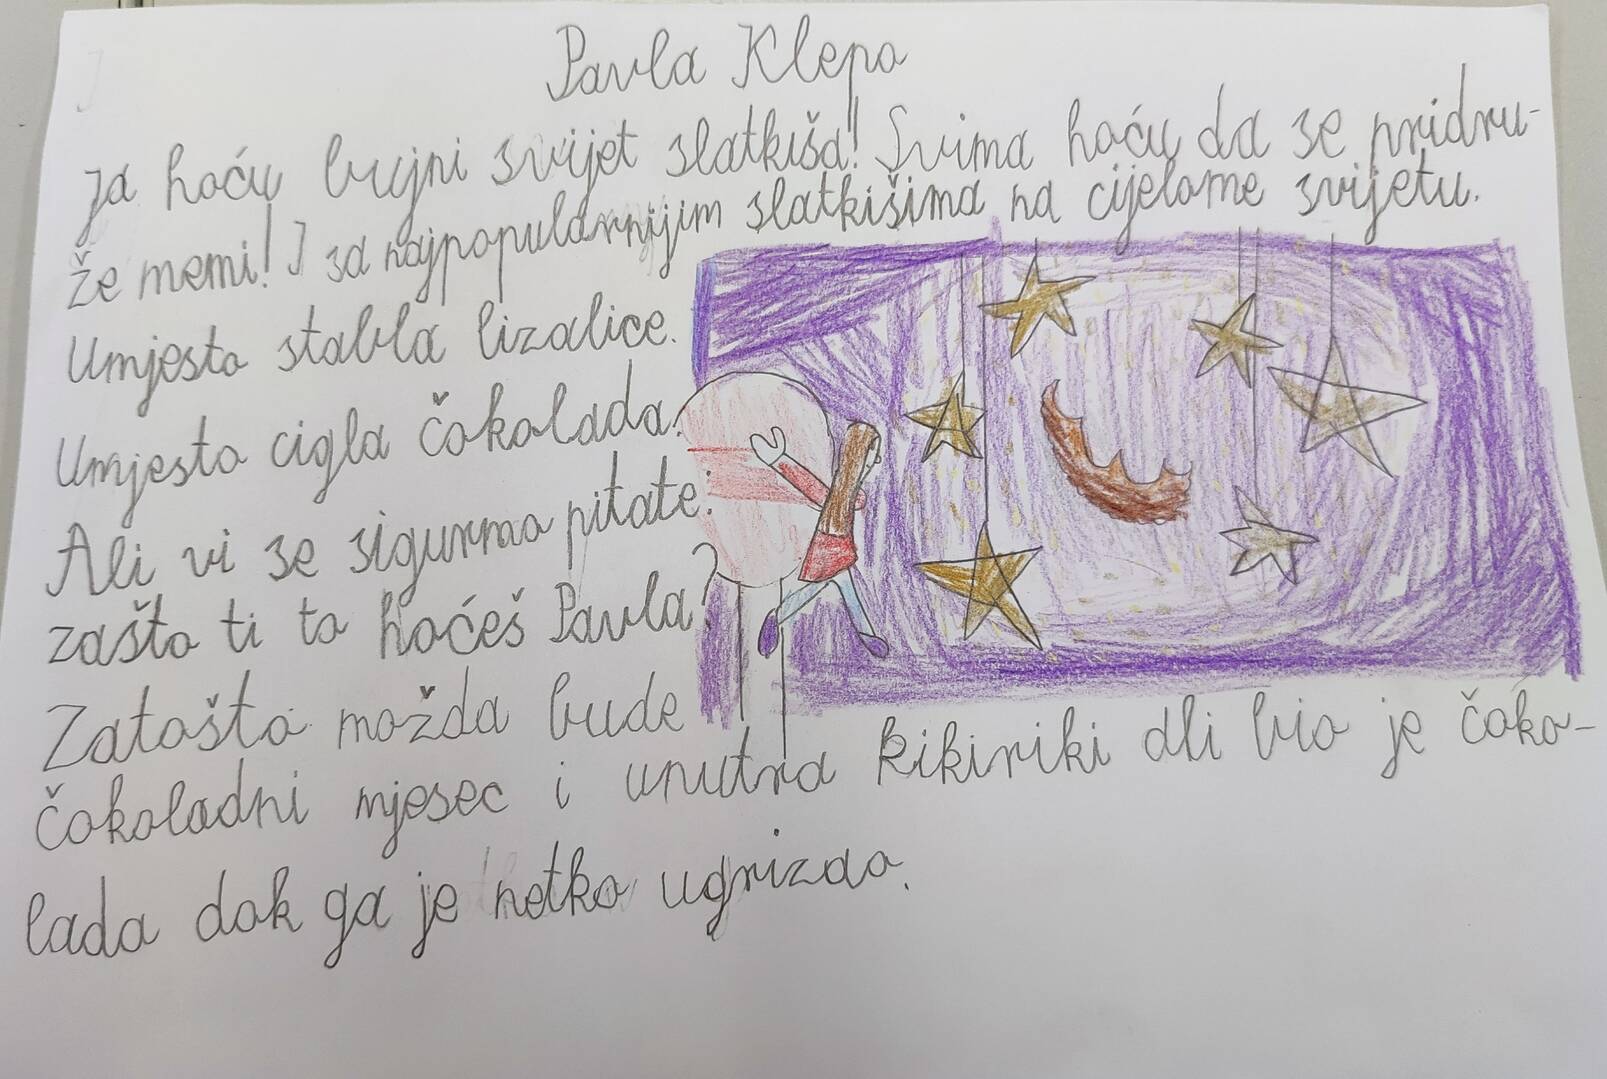 Pavla Klepo
Ja hoću bujni svijet slatkiša! Svima hoću da se pridru-
že memi! I sa najpopularnijim slatkišima na cijelome svijetu.
Umjesto stabla lizalice.
Umjesto cigla čokolada.
Ali vi se sigurno pitate:
zašto ti to hoćeš Pavla?
Zatošto možda bude
čokoladni mjesec i unutra kikiriki ali bio je čoko-
lada dok ga je netko ugrizao.